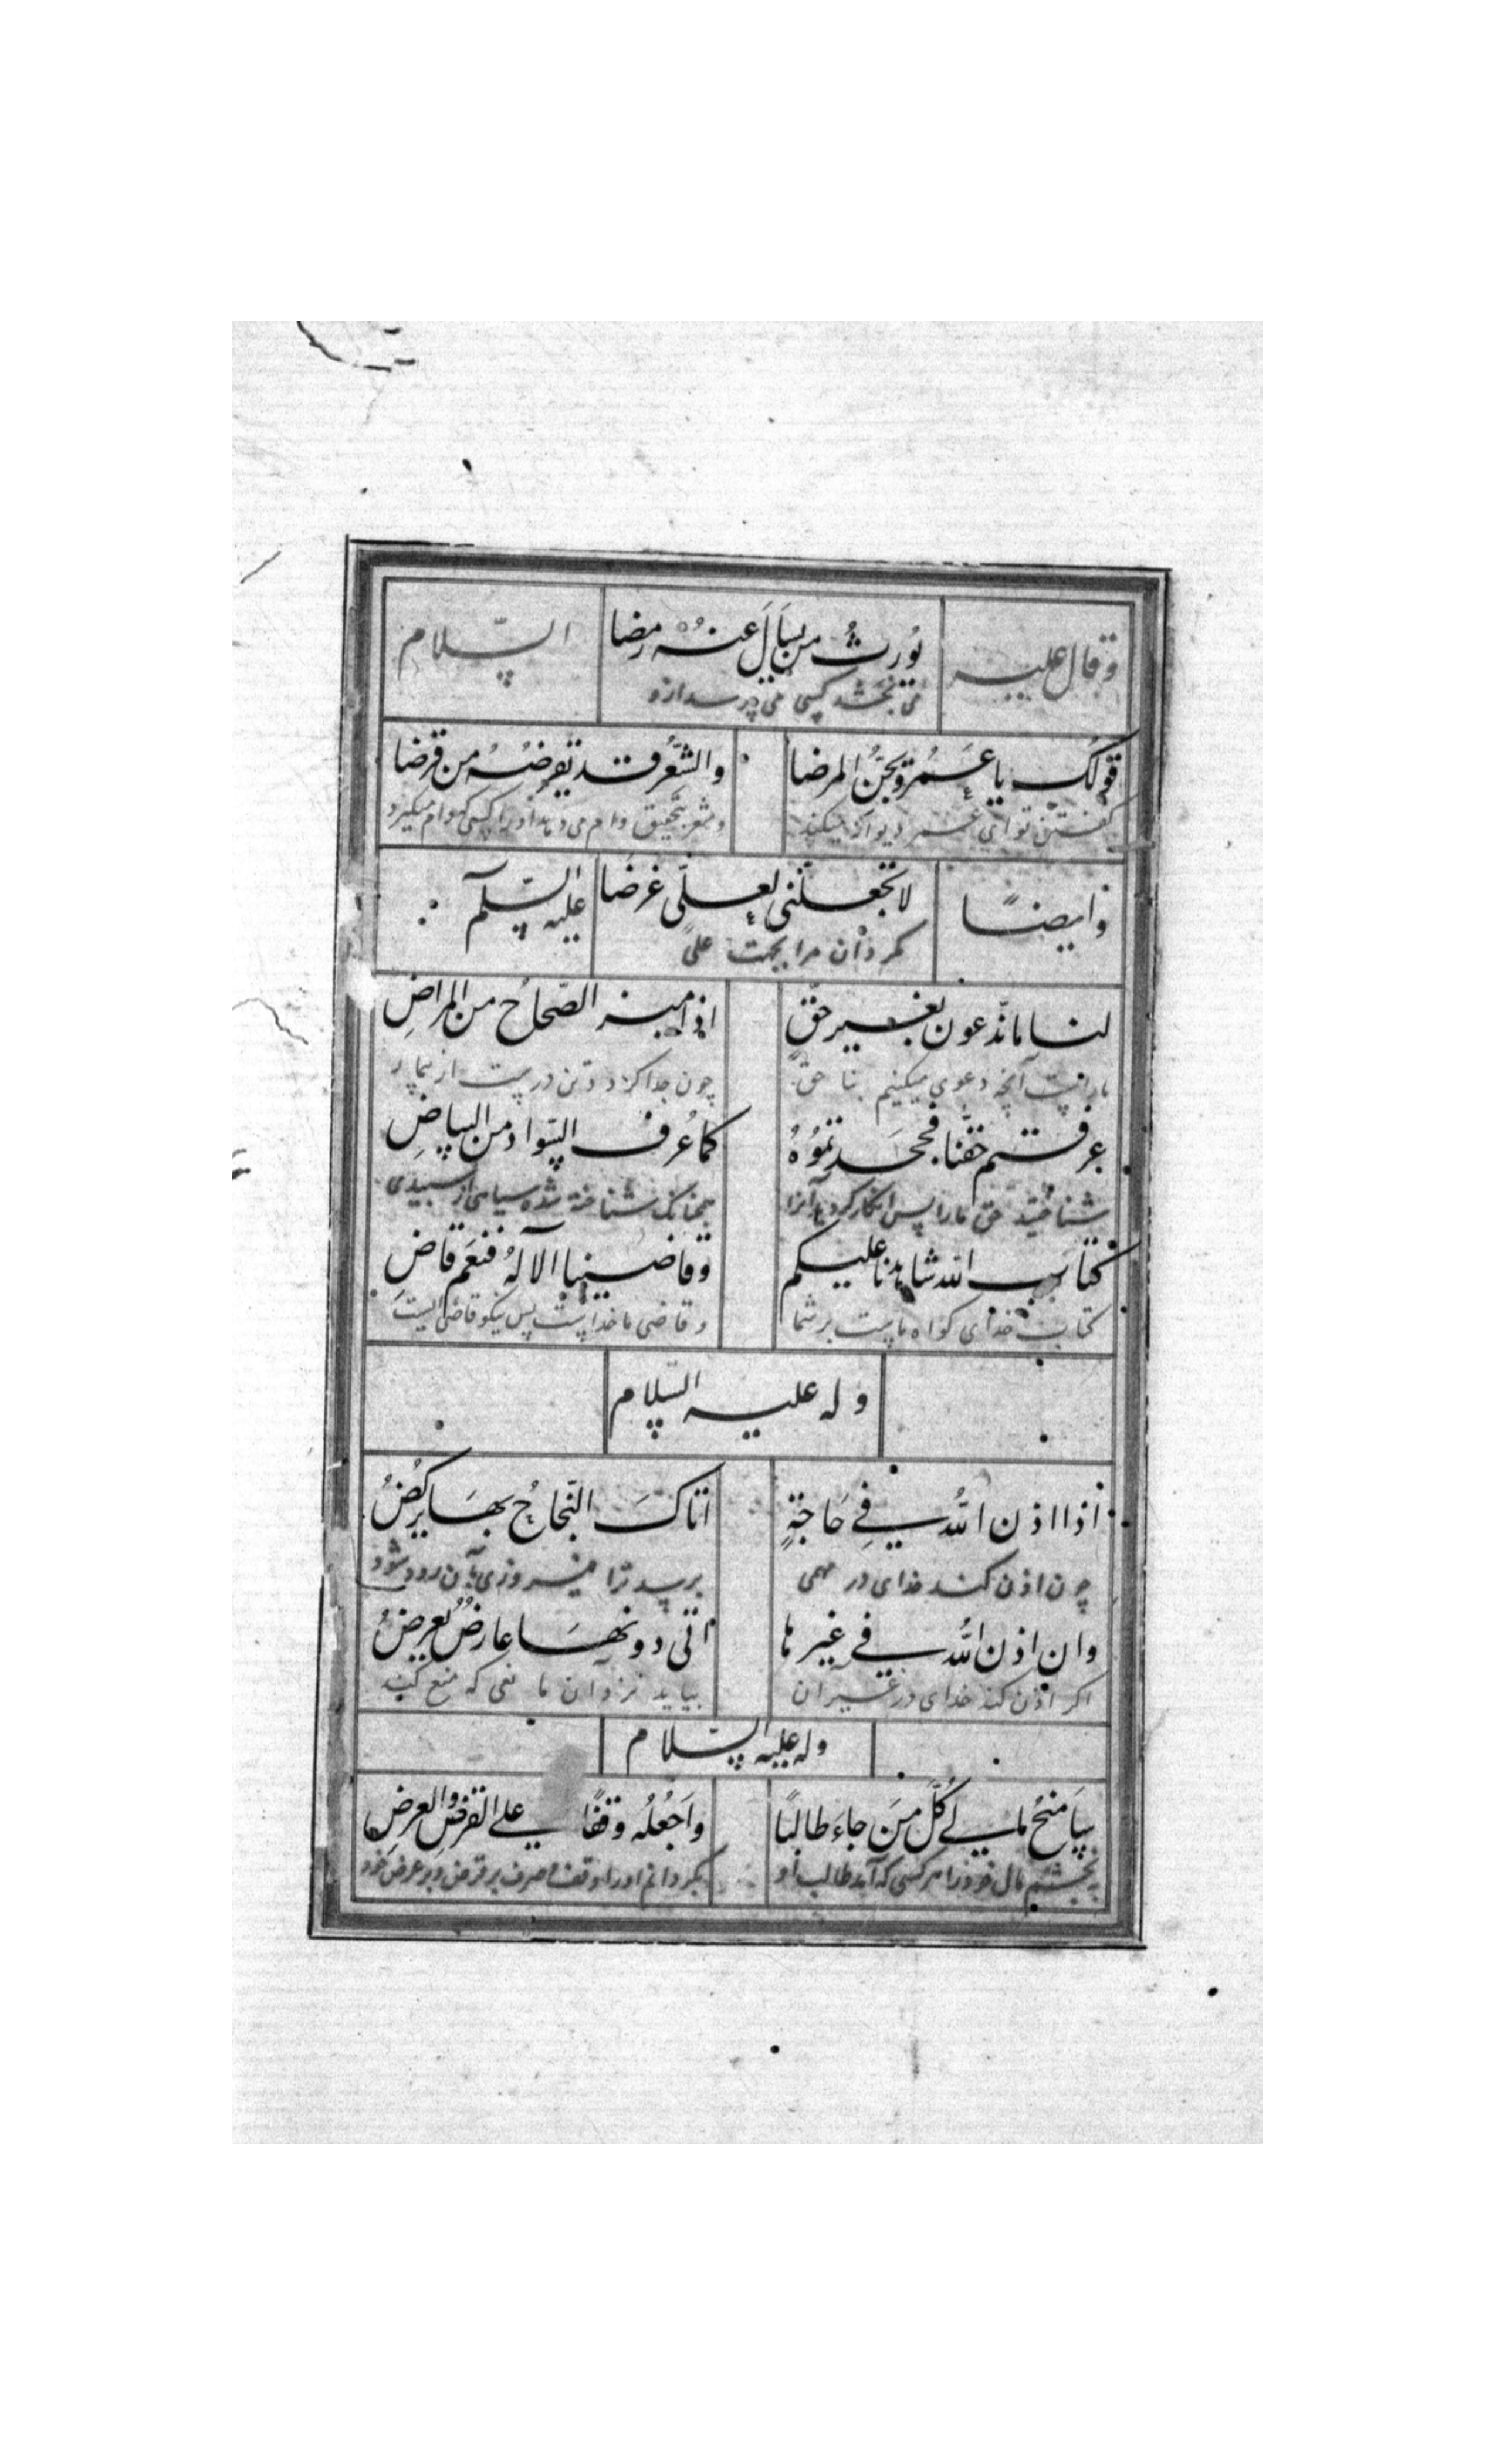 وقال علیه یُورِثُ من یسَالَ عنهُ مرضا السّلام
می‌بخشد کسی می‌پرسد ازو
قولُکَ یا عَمُرو یجنُّ المرضا والشّعرُ قد تقرضهُ من قرضا
گفتن تو ای عمر دیوانه میکند و شعر بتحقیق وام می‌دهد او را کسی که وام میگیرد
وایضًا لا تجعلنّی لعلّی غرضا علیه السّلم
مگردان مرا بجهت علی
لنا ما ندّعون بغیر حقٍّ اذا میز الصّحاحُ من المراضِ
ما راست آنچه دعوی میکنیم بنا حق چون جدا کرد و تن درست از بیمار
عرفتم حقّنا فجحدتموُهُ کما عُرف السّواد من البیاضِ
شناختید حق ما را پس انکار کردید آنرا همچنانک شناخته شده سیاهی از سبیدی
کتابَ الله شاهدنا علیکم وقاضینا الآلهُ فنعم قاضِ
کتاب خدای کواه ماست بر شما و قاضی ما خداست پس نیکو قاضی الیست
وله علیه السّلام
اذا اذن اللهُ فی حَاجةٍ اتاکَ النّجاحُ بهَا یرکُضُ
چون اذن کند خدای در مهمی برسد ترا فیروزی بآن رود شود
وان اذن الله فی غیرها اتی دونهَا عارضٌ یُعرضُ
اکر اذن کند خدای در غیر ان بیاید نزد آن ما نعی که منع کند
وله علیه السّلام
سَامنحُ مالی کُلَّ مَن جاءَ طالبًا واَجعُلُه وقفًا علی القرض والعرضِ
به بخشم مال خود را هر کسی که آید طالب او بکردانم اورا وقف صرف بر قرض و بر عرض خود